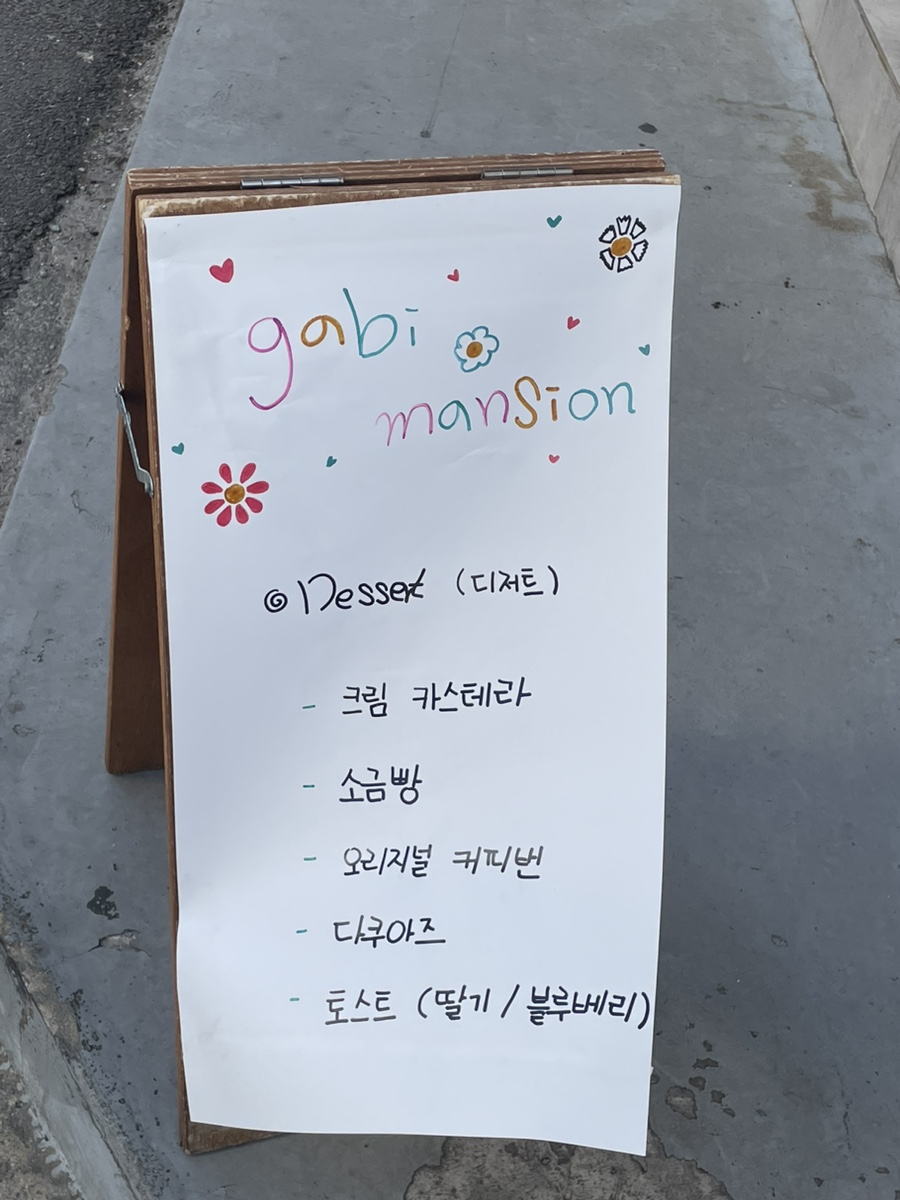 gabi
mansion
◎ Dessert (디저트)
- 크림 카스테라
- 소금빵
- 오리지널 커피번
- 다쿠아즈
- 토스트 (딸기 / 블루베리)